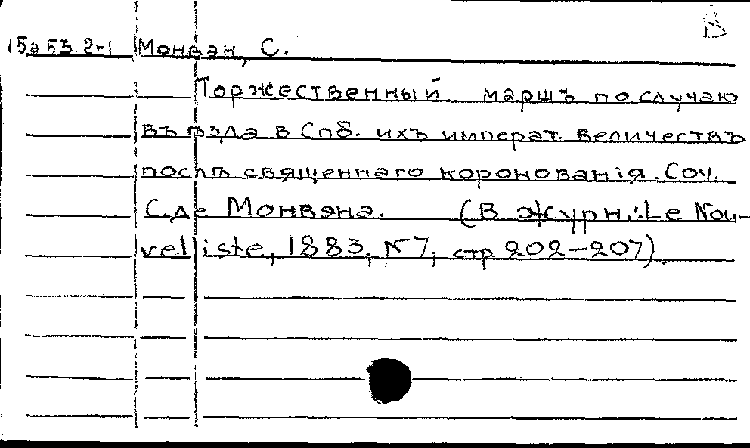 В
Монвэн, С.
Торжественный маршъ по случаю
въѣзда в Спб. ихъ императ. величествъ
послѣ священнаго коронованія. Соч.
С. де Монвэна. (В журн.: Le Nou-
velliste, 1883, N 7, стр 202–207).